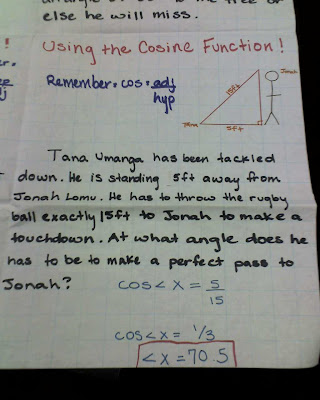 else he will miss.
Using the Cosine Function!
Remember: cos = adj
hyp
15ft
Jonah
Tana
5ft
Tana Umanga has been tackled
down. He is standing 5ft away from
Jonah Lomu. He has to throw the rugby
ball exactly 15ft to Jonah to make a
touchdown. At what angle does he
has to be to make a perfect pass to
Jonah?
cos< x = 5
15
cos< x = 1/3
< x = 70.5